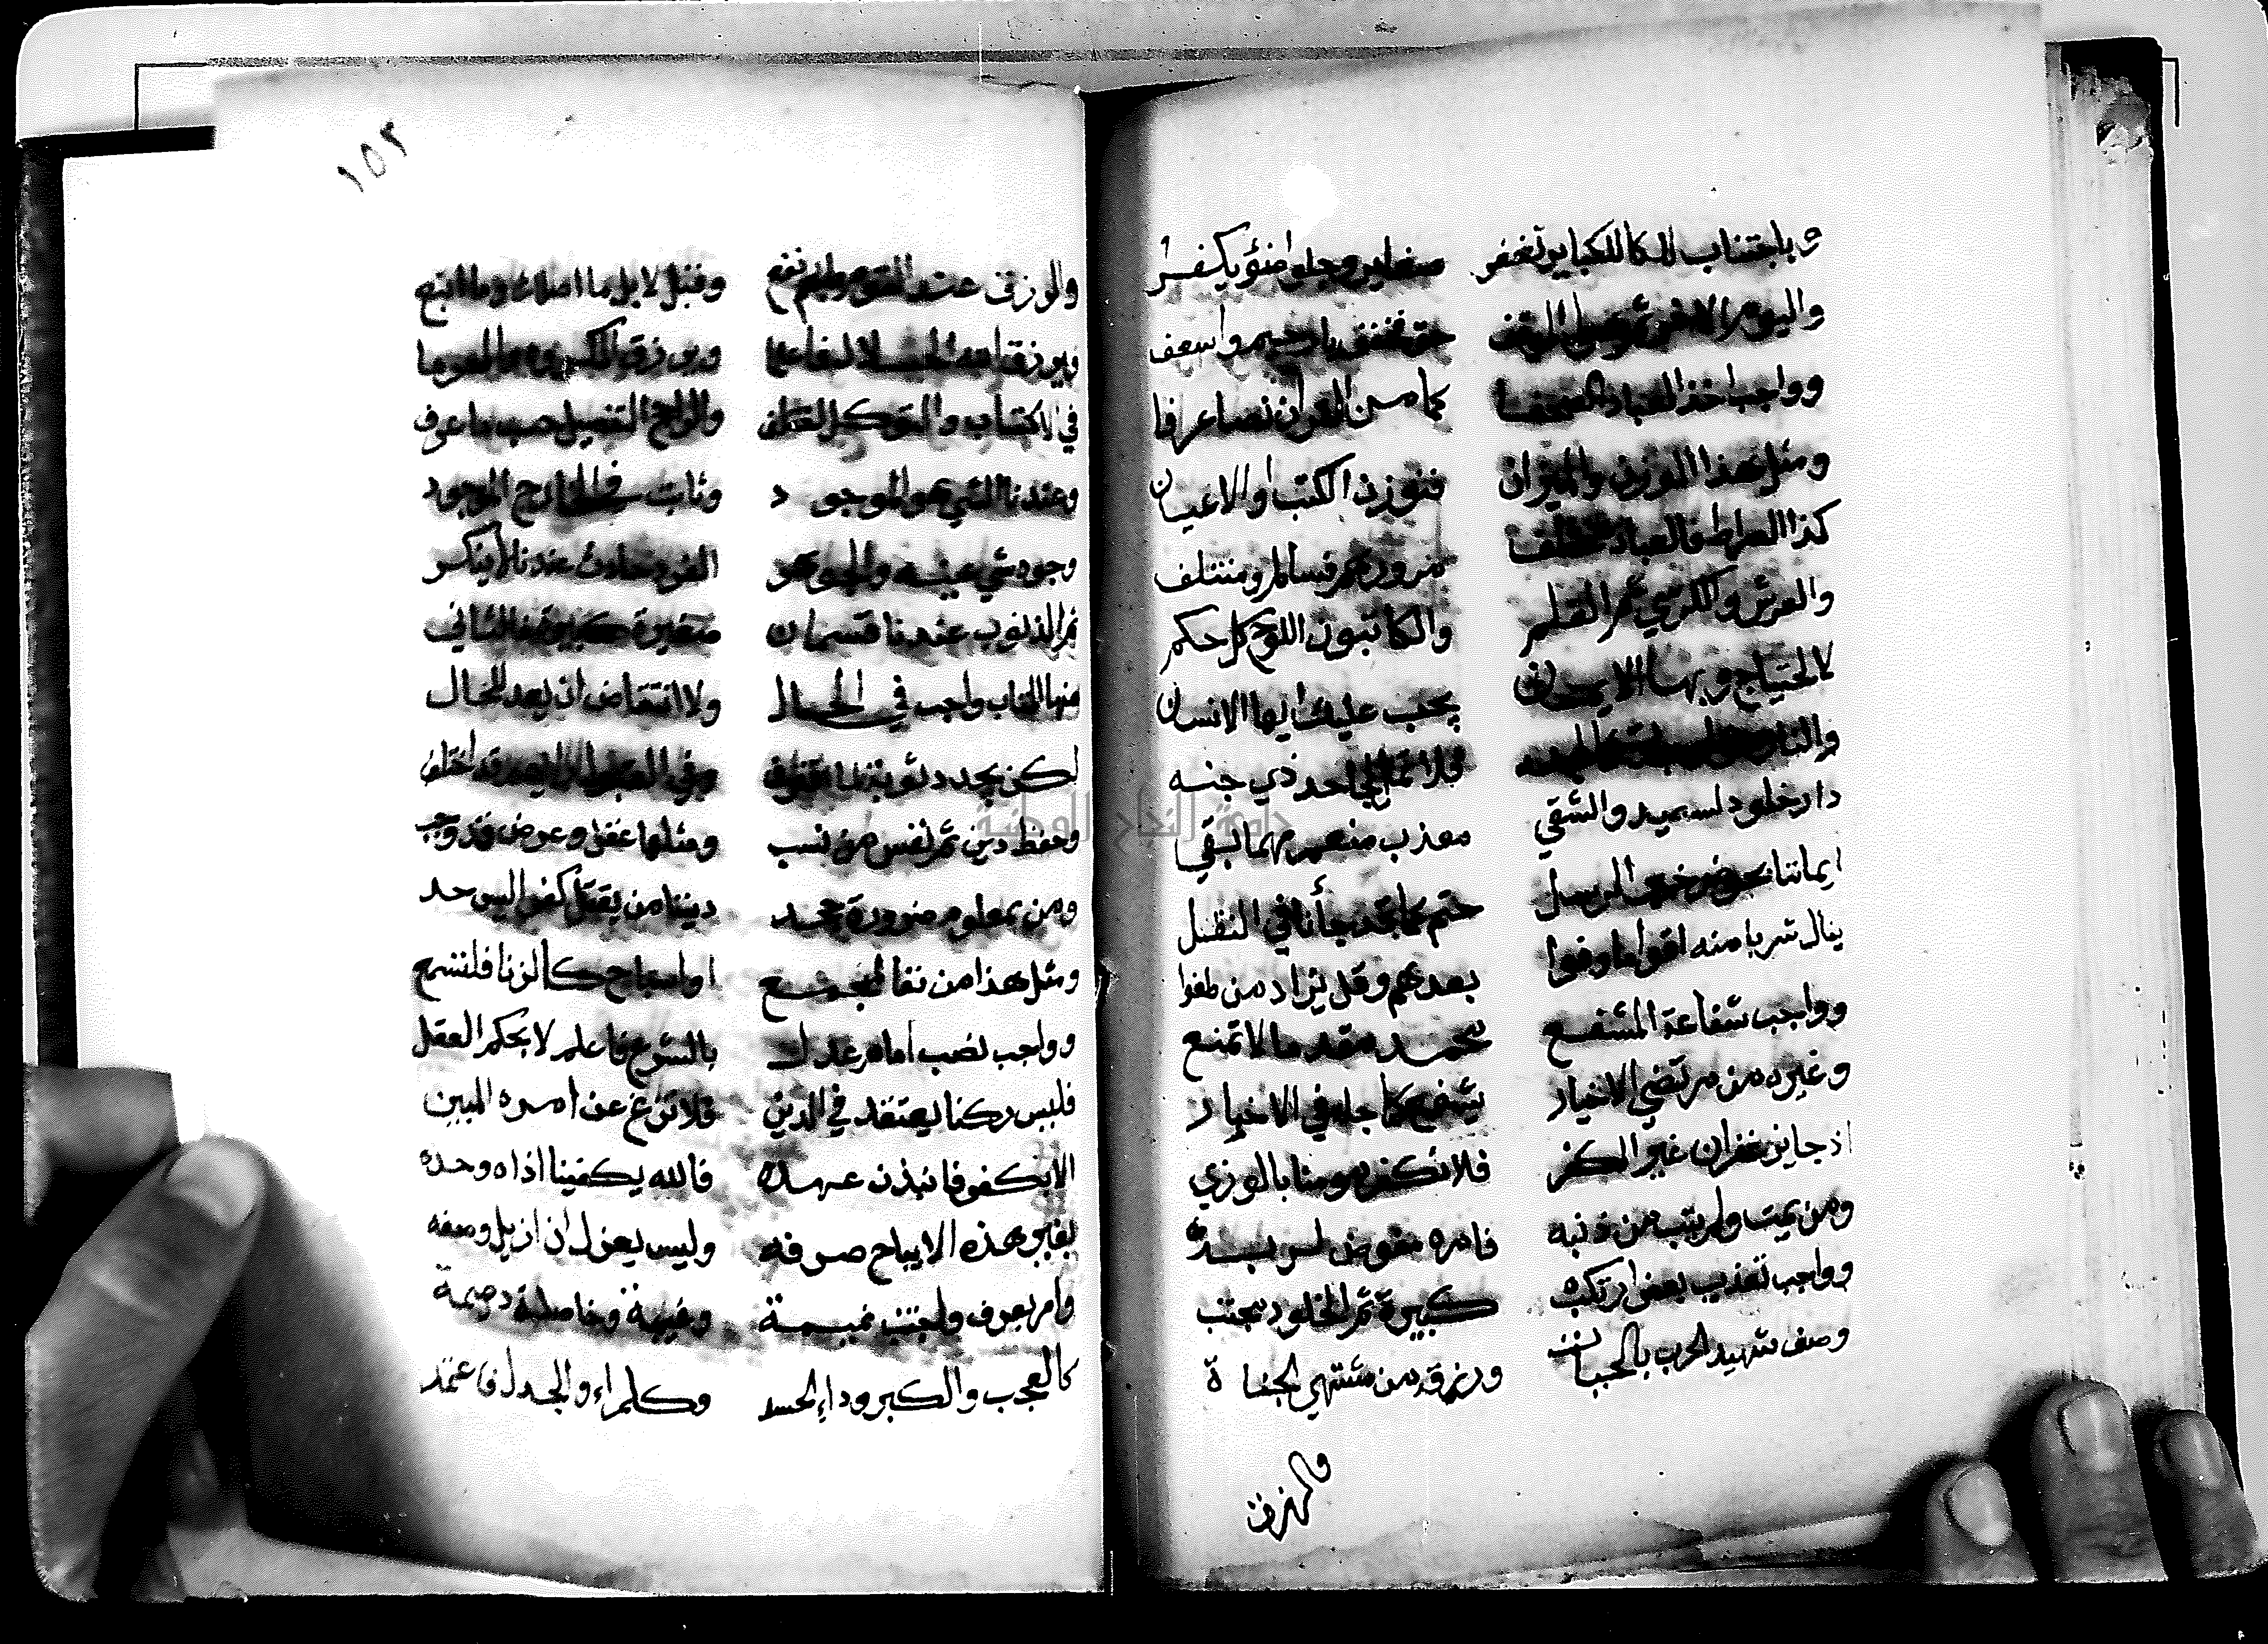 وباجتناب للكبائر تغفر صغاير وجا وضؤ يكفر
واليوم الاخر ثم هول الموقف حق فخفف يا رحيم واسعف
وواجب اخذ العباد الصحفا كما من القران نصا عرفا
ومثل هذا الوزن والميزان فتوزن الكتب او الاعيان
كذا الصراط فالعباد مختلف مرورهم فسالم ومنتلف
والعرش والكرسي ثم القلم والكاتبون اللوح كل حكم
لا لاحتياج وبها الايمان يجب عليك ايها الانسان
والنار حق كالجنه فلا تمل لجاحد ذي جنه
دار خلود لسعيد والشقي معذب منعم مهما بقي
ايماننا بحوض خير الرسل حتم كما قد جأنا في النقل
ينال شربا منه اقوام وفوا بعهدهم وقل يزاد من طغوا
وواجب شفاعة المشفع محمد مقدما لا تمنع
وغيره من مرتضى الاخيار يشفع كما جا في الاخبار
اذ جايز غفران غير الكفر فلا نكفر مومنا بالوزر
ومن يمت ولم يتب من ذنبه فامره مفوض لربه
وواجب تعذيب بعض ارتكب كبيرة ثم الخلود مجتنب
وصف شهيد الحرب بالحياة ورزقه من مشتهى الجنات
والرزق
١٥٢
والرزق عند القوم ما به نفع وقيل لا بل ما ملك وما اتبع
فيرزق الله الحلال فاعلما ويرزق المكروه والمحرما
في الاكتساب والتوكل اختلف والراجح التفصيل حسب ما عرف
وعندنا الشي هو الموجود وثابت في الخارج الموجود
وجود شي عينه والجوهر الفرد حادث عندنا لا ينكر
ثم الذنوب عندنا قسمان صغيرة كبيرة فالثاني
منها المتاب واجب في الحال ولا انتقاض ان يعد للحال
لكن يجدد توبة لما اقترف وفي القبول رايهم قد اختلف
وحفظ دين ثم نفس مال نسب ومثلها عقل وعرض قد وجب
ومن لمعلوم ضرورة جحد من ديننا يقتل كفرا ليس حد
ومثل هذا من نفا لمجمع او استباح كالزنا فلتسمع
وواجب نصب امام عدل بالشرع فاعلم لا بحكم العقل
فليس ركنا يعتقد في الدين فلا تزغ عن امره المبين
الا بكفر فانبذن عهده فالله يكفينا اذاه وحده
بغير هذه لا يباح صرفه وليس يعزل ان ازيل وصفه
وامر بعرف واجتنب نميمة وغيبة وخصلة ذميمة
كالعجب والكبر وداء الحسد وكالمراء والجدل فاعتمد